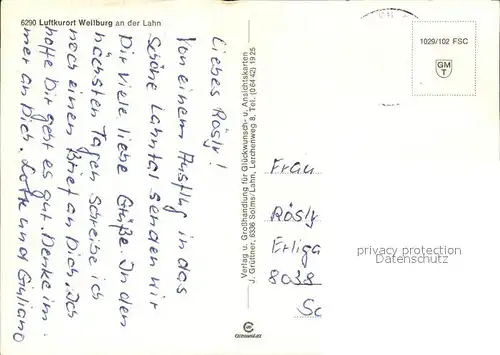 6290 Luftkurort Weilburg an der Lahn
Liebes Rösly!
Von einem Ausflug in das
schöne Lahntal senden wir
Dir viele liebe Grüße. In den
nächsten Tagen schreibe ich
noch einen Brief an Dich. Ich
hoffe Dir geht es gut. Denke im-
mer an Dich. Lotte und Giuliano
Verlag u. Großhandlung für Glückwunsch- u. Ansichtskarten
J. Grüttner, 6336 Solms/Lahn, Lerchenweg 8, Tel. (0 64 42) 19 25
1029/102 FSC
GM
T
Frau
Rösly
Erliga
8038
privacy protection
Datenschutz